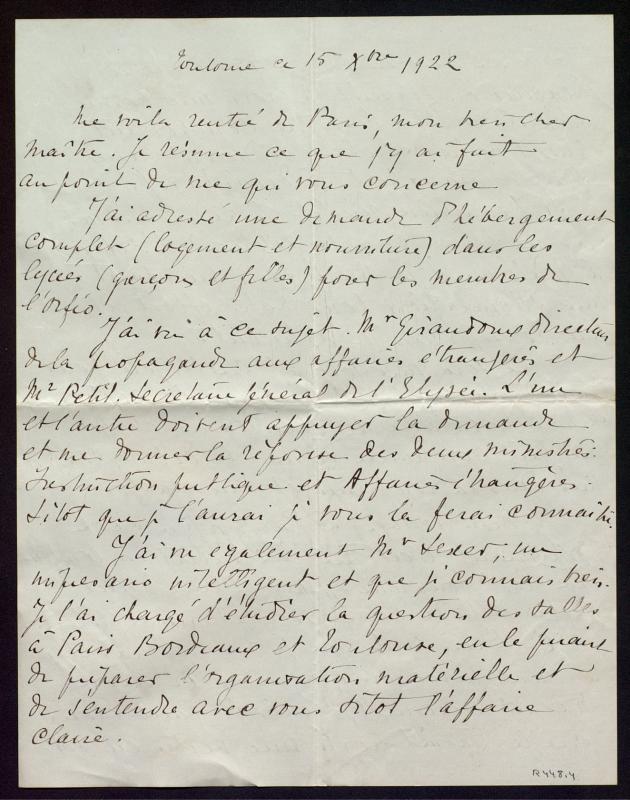 Toulouse ce 15 Xbre 1922
Me voilà rentré de Paris, mon bien cher
maître. Je résume ce que j'y ai fait
au point de vue qui vous concerne
J'ai adressé une demande d'hébergement
complet (logement et nourriture) dans les
lycées (garçons et filles) pour les membres de
l'Orfeo.
J'ai vu à ce sujet. Mr Giraudoux directeur
de la propagande aux affaires étrangères et
Mr Petit. Secrétaire général de l'Elysée. L'un
et l'autre doivent appuyer la demande
et me donner la réponse des deux ministres.
Instruction publique et Affaires étrangères.
Sitot que je l'aurai je vous la ferai connaître.
J'ai vu également Mr un
impresario intelligent et que je connais bien.
Je l'ai chargé d'étudier la question des salles
à Paris Bordeaux et Toulouse, en le priant
de préparer l'organisation matérielle et
de sentendre avec vous sitot l'affaire
claire.
R448.4